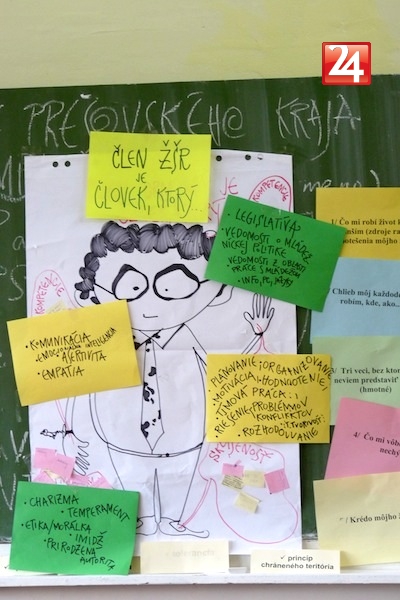 24
PREŠOVSKÉHO KRAJA
ČLEN ŽŠR
JE
ČLOVEK, KTORÝ...
JE
KOMPETENCIA
• LEGISLATÍVA
• VEDOMOSTI O MLÁDEŽ
NÍCKEJ POLITIKE
VEDOMOSTI Z OBLASTI
PRÁCE S MLÁDEŽOU
• INFO, PC, JAZYKY
• KOMUNIKÁCIA
EMOCIONÁLNA INTELIGENCIA
• ASERTIVITA
• EMPATIA
• PLÁNOVANIE; ORGANIZOVANIE
• MOTIVÁCIA; HODNOTENIE
• TÍMOVÁ PRÁCA
• RIEŠENIE; PROBLÉMOV
KONFLIKTOV
• ROZHODOVANIE
SKÚSENOSTI
• CHARIZMA
• TEMPERAMENT
• ETIKA/MORÁLKA
• IMIDŽ
• PRIRODZENÁ
AUTORITA
1/ Čo mi robí život k
Chlieb môj každode
robím, kde, ako...
Tri veci, bez ktor
neviem predstaviť
(hmotné)
4/ Čo mi vôb
nechý
/ Krédo môjho ž
✓ princíp
chráneného teritória